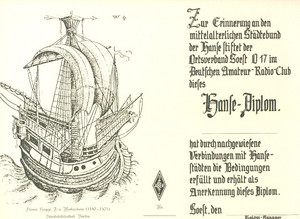 Zur Erinnerung an den
mittelalterlichen Städtebund
der Hanse stiftet der
Ortsverband Soest O 17 im
Deutschen Amateur-Radio-Club
dieses
Hanse-Diplom.
hat durch nachgewiesene
Verbindungen mit Hanse-
städten die Bedingungen
erfüllt und erhält als
Anerkennung dieses Diplom.
Soest, den
Diplom-Manager